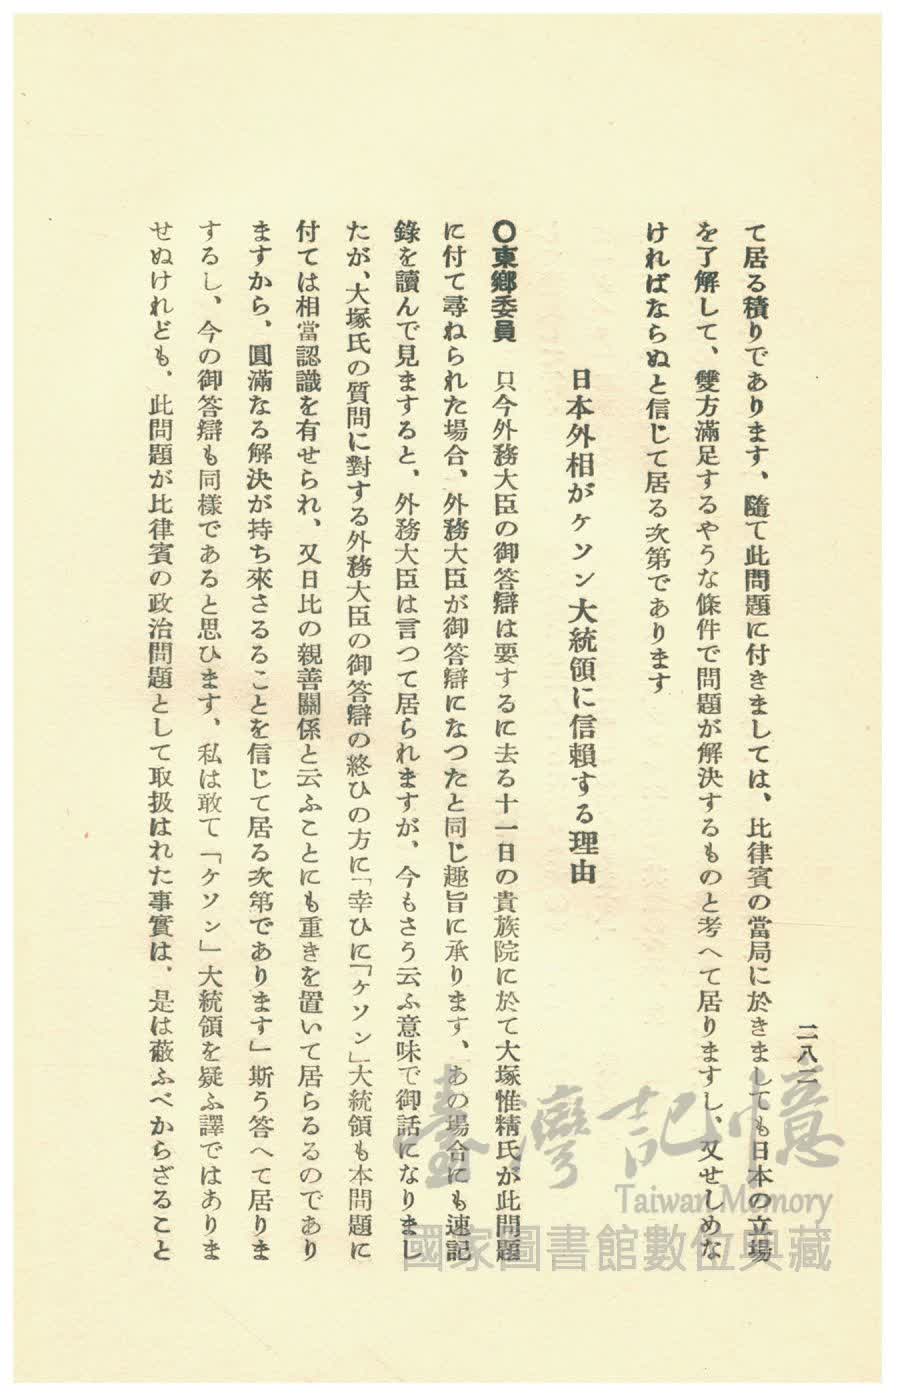 二八二
て居る積りであります、隨て此問題に付きましては、比律賓の當局に於きましても日本の立場
を了解して、雙方滿足するやうな條件で問題が解決するものと考へて居りますし、又せしめな
ければならぬと信じて居る次第であります
日本外相がケソン大統領に信賴する理由
〇東鄕委員　只今外務大臣の御答辯は要するに去る十一日の貴族院に於て大塚惟精氏が此問題
に付て尋ねられた場合、外務大臣が御答辯になつたと同じ趣旨に承ります、あの場合にも速記
錄を讀んで見ますると、外務大臣は言つて居られますが、今もさう云ふ意味で御話になりまし
たが、大塚氏の質問に對する外務大臣の御答辯の終ひの方に「幸ひに「ケソン」大統領も本問題に
付ては相當認識を有せられ、又日比の親善關係と云ふことにも重きを置いて居らるるのであり
ますから、圓滿なる解決が持ち來さるることを信じて居る次第であります」斯う答へて居りま
するし、今の御答辯も同樣であると思ひます、私は敢て「ケソン」大統領を疑ふ譯ではありま
せぬけれども、此問題が比律賓の政治問題として取扱はれた事實は、是は蔽ふべからざること
臺灣記憶
Taiwan Memory
國家圖書館數位典藏